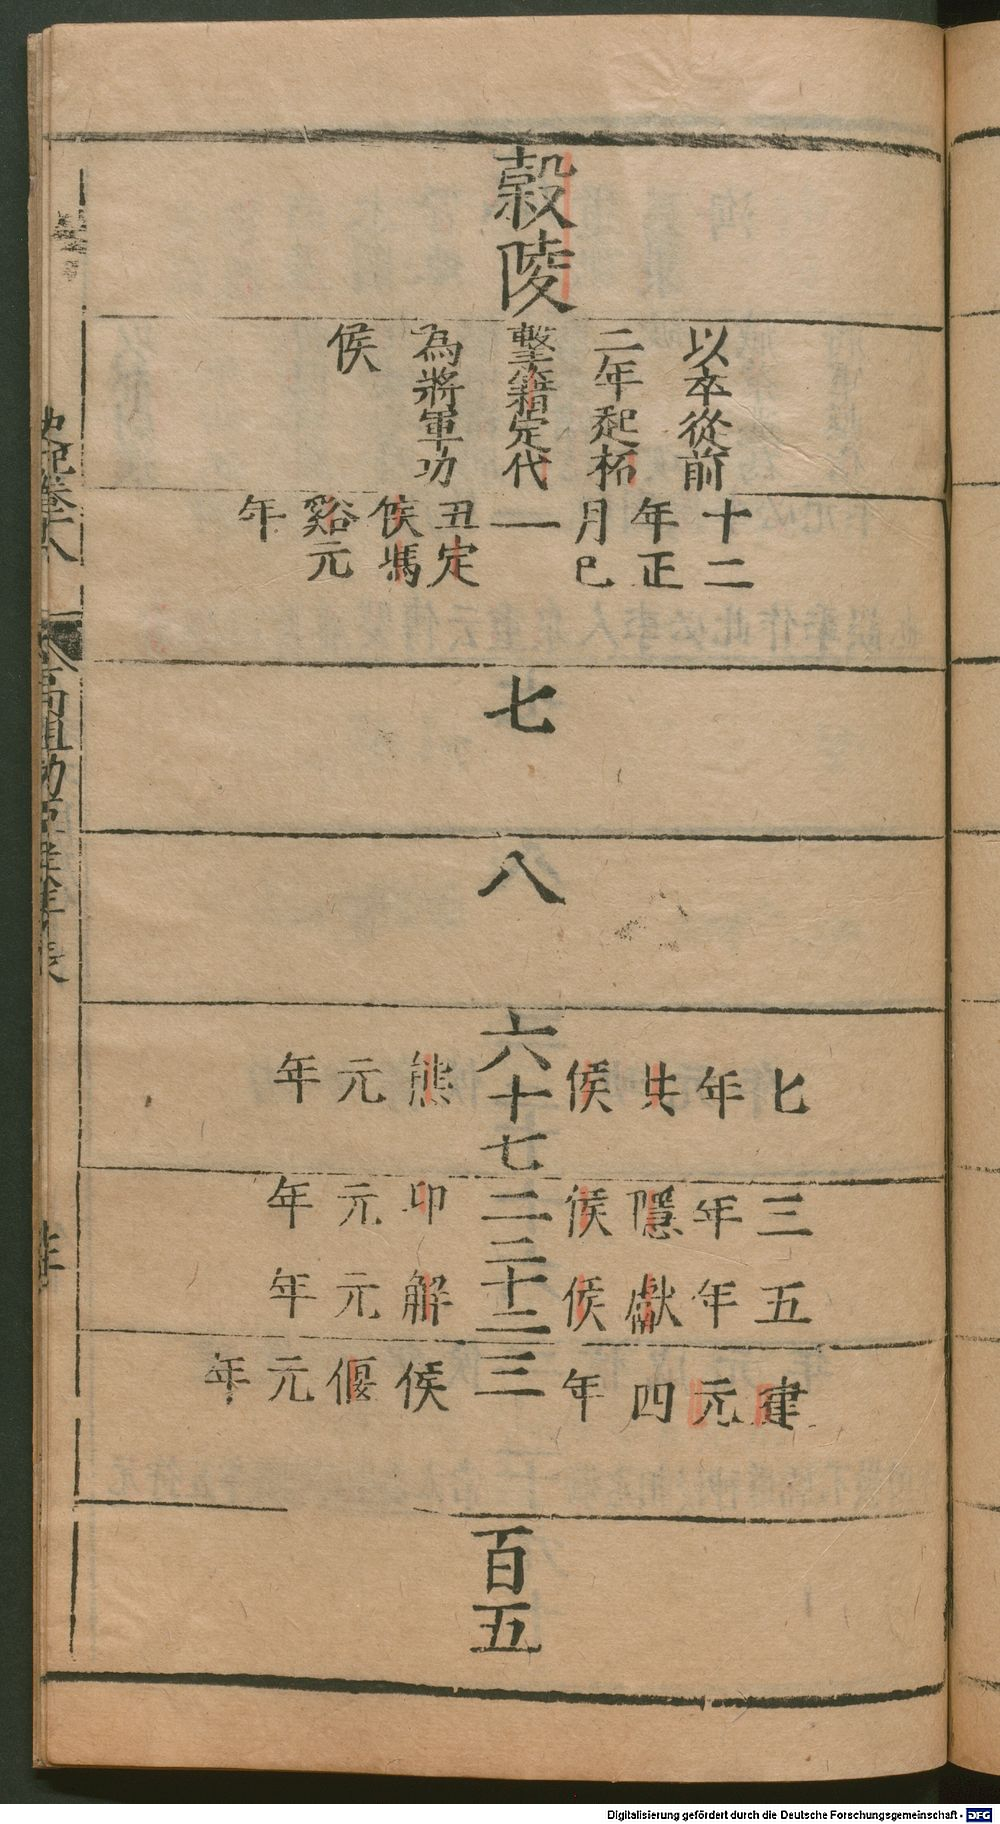 穀陵
以卒從前
二年起柘
擊籍定代
為將軍功
侯
十二
年正
月巳
一
丑定
侯馮
谿元
年
七
八
七
年
共
侯
六十七
熊
元
年
三
年
隱
侯
二
卬
元
年
五
年
獻
侯
二十二
解
元
年
建
元
四
年
三
侯
偃
元
年
百五
史記卷十八
高祖功臣侯年表
Digitalisierung gefördert durch die Deutsche Forschungsgemeinschaft - DFG